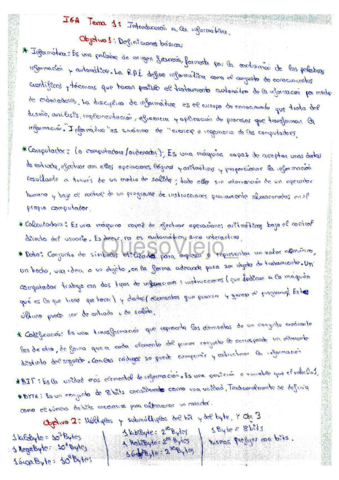 IGA Tema 1: Introducción a la informática.
Objetivo 1: Definiciones básicas
* Informática: Es una palabra de origen francés formada por la contracción de las palabras
información y automática. La R.A.E. define informática como el conjunto de conocimientos
científicos y técnicas que hacen posible el tratamiento automático de la información por medio
de ordenadores. La disciplina de informática es el cuerpo de conocimiento que trata del
diseño, análisis, implementación, eficiencia y aplicación de procesos que transforman la
información. "Informática" es sinónimo de "ciencia e ingeniería de los computadores.
* Computador: (o computadora/ordenador). Es una máquina capaz de aceptar unos datos
de entrada, efectuar con ellos operaciones lógicas y aritméticas, y proporcionar la información
resultante a través de un medio de salida; todo ello sin intervención de un operador
humano y bajo el control de un programa de instrucciones previamente almacenado en el
propio computador.
* Calculadora: Es una máquina capaz de efectuar operaciones aritméticas bajo el control
directo del usuario. Es decir, no es automática, sino interactiva.
* Datos: Conjunto de símbolos utilizados para expresar o representar un valor numérico,
un hecho, una idea o un objeto, en la forma adecuada para ser objeto de tratamiento. Un
computador trabaja con dos tipos de información: instrucciones (que indican a la máquina
qué es lo que tiene que hacer) y datos (elementos que procesa y genera el programa). Estos
últimos puede ser de entrada o de salida.
* Codificación: Es una transformación que representa los elementos de un conjunto mediante
los de otro, de forma que a cada elemento del primer conjunto le corresponde un elemento
distinto del segundo. Con los códigos se puede comprimir y estructurar la información
* BIT: Es la unidad más elemental de información. Es una posición o variable que el valor 0 o 1.
* BYTE: Es un conjunto de 8 bits considerado como una unidad. Tradicionalmente se definía
como el número de bits necesarios para almacenar un carácter.
Objetivo 2: Múltiplos y submúltiplos del bit y del byte, y Obj 3
1 KiloByte: 10³ Bytes 1 KibiByte: 2¹⁰ Bytes 1 Byte = 8 bits
1 MegaByte: 10⁶ Bytes 1 MebiByte: 2²⁰ Bytes mismos prefijos con bits.
1 GigaByte: 10⁹ Bytes 1 GibiByte: 2³⁰ Bytes
QuesoViejo